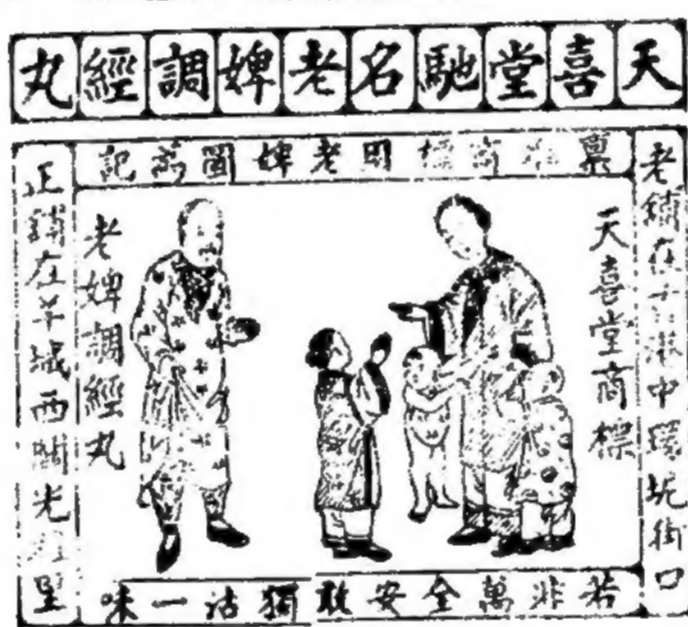 天喜堂馳名老婢調經丸
稟准商標用老婢圖為記
老舖在香港中環坑街口
天喜堂商標
老婢調經丸
正舖在羊城西關光里
若非萬全安敢獨沽一味